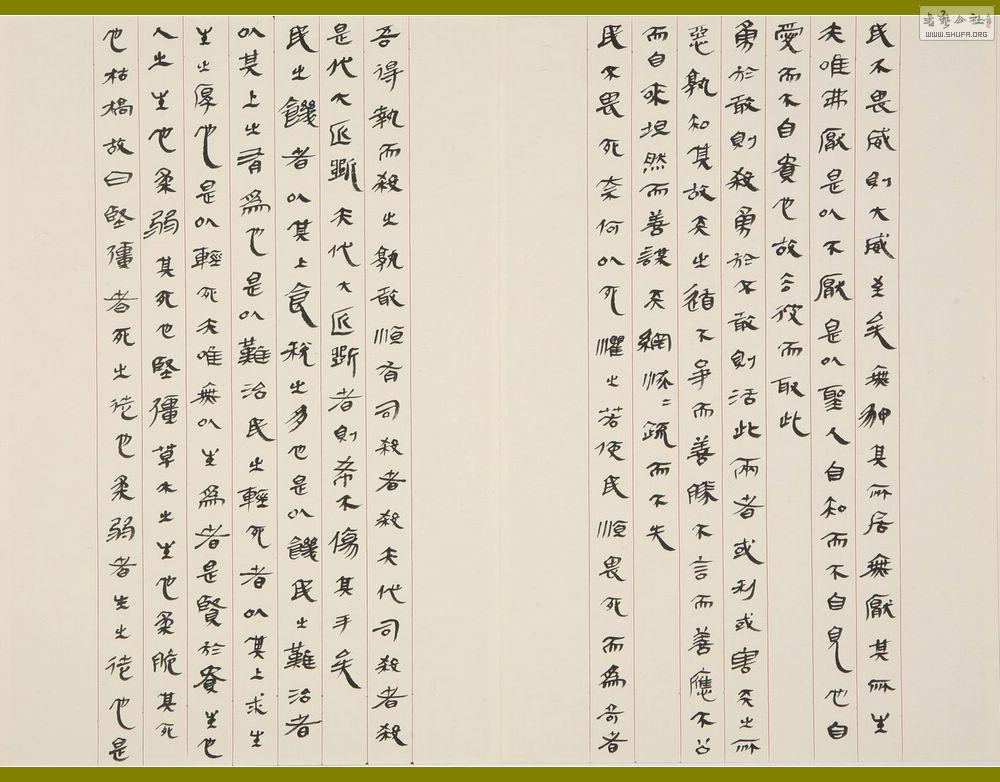 民不畏威則大威至矣無狎其所居無厭其所生
夫唯弗厭是以不厭是以聖人自知而不自見也自
愛而不自貴也故去彼而取此
勇於敢則殺勇於不敢則活此兩者或利或害天之所
惡孰知其故天之道不爭而善勝不言而善應不召
而自來坦然而善謀天網恢〻疏而不失
民不畏死奈何以死懼之若使民順畏死而為奇者
吾得執而殺之孰敢順有司殺者殺夫代司殺者殺
是代大匠斲夫代大匠斲者則希不傷其手矣
民之饑者以其上食稅之多也是以饑民之難治者
以其上之有為也是以難治民之輕死者以其上求生
生之厚也是以輕死夫唯無以生為者是賢於貴生也
人之生也柔弱其死也堅彊草木之生也柔脆其死
也枯槁故曰堅彊者死之徒也柔弱者生之徒也是
书艺公社
WWW.SHUFA.ORG